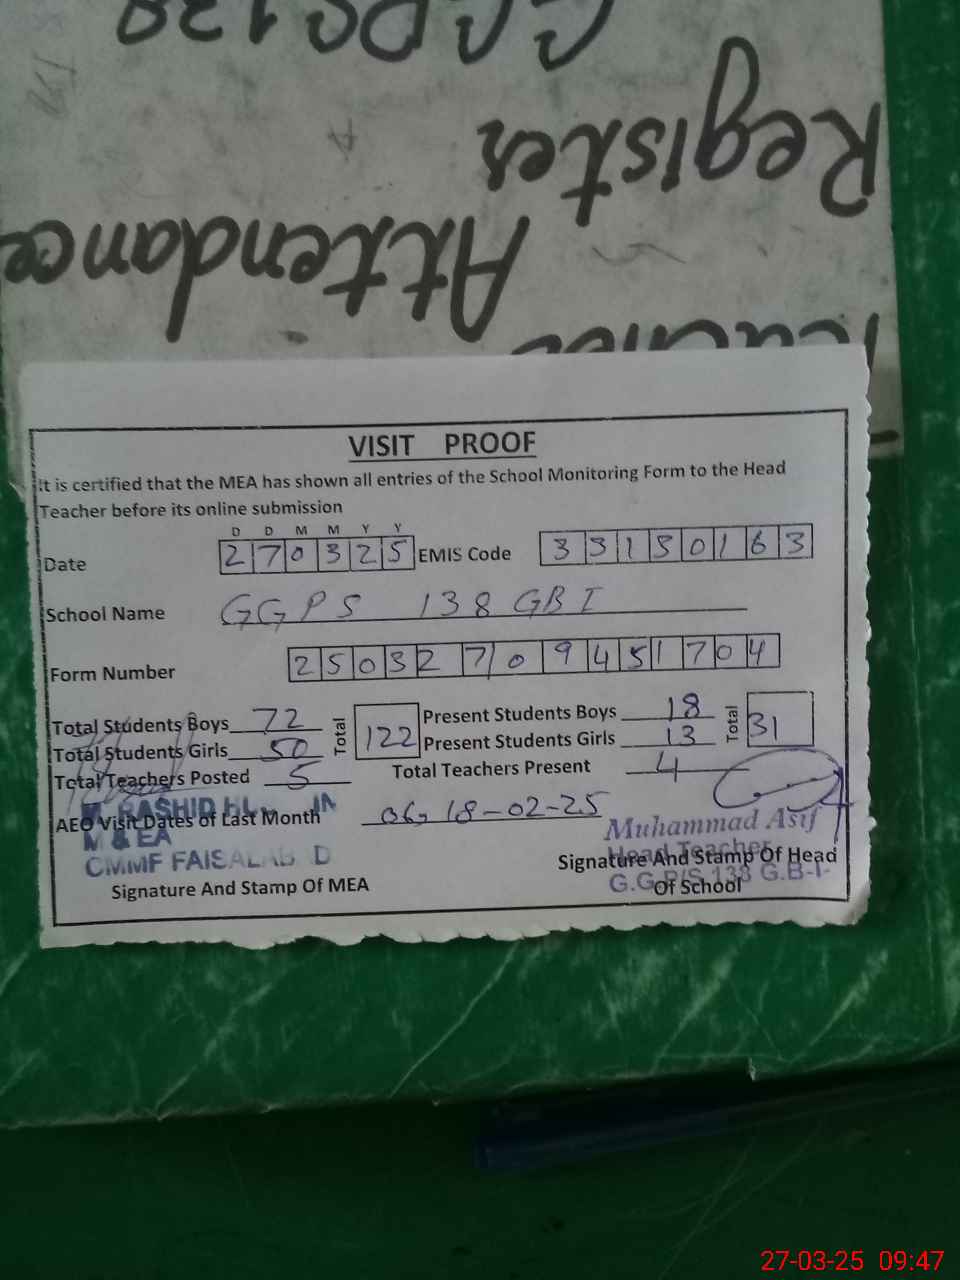 Attendance
Register
VISIT PROOF
It is certified that the MEA has shown all entries of the School Monitoring Form to the Head
Teacher before its online submission
D D M M Y Y
Date 270325 EMIS Code 33130163
School Name GGPS 138 GBI
Form Number 25032709451704
Total Students Boys 72 Total 122 Present Students Boys 18 Total 31
Total Students Girls 50 Present Students Girls 13
Total Teachers Posted 5 Total Teachers Present 4
AEO Visit Dates of Last Month 06, 18-02-25
M & EA
CMMF FAISALABAD
Signature And Stamp Of MEA
Muhammad Asif
Head Teacher
G.G.P/S 138 G.B-I-
Signature And Stamp Of Head
Of School
27-03-25 09:47